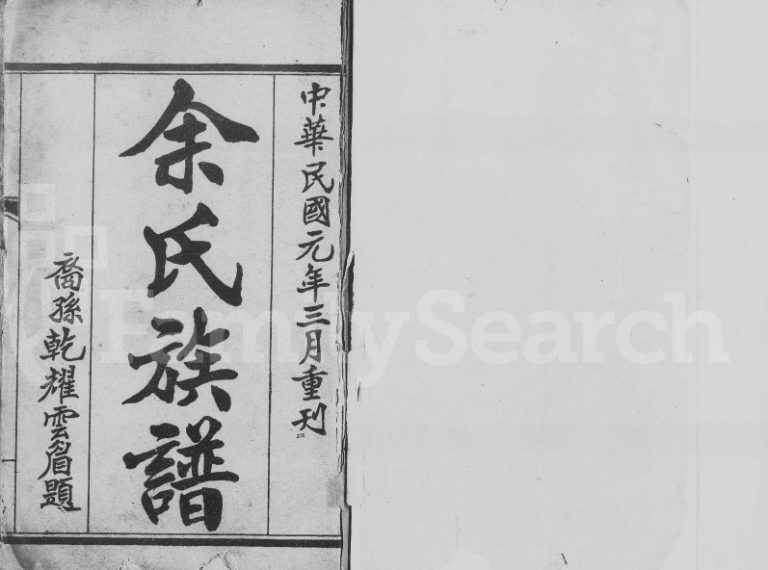 中華民國元年三月重刊
余氏族譜
裔孫乾耀雲眉題
FamilySearch